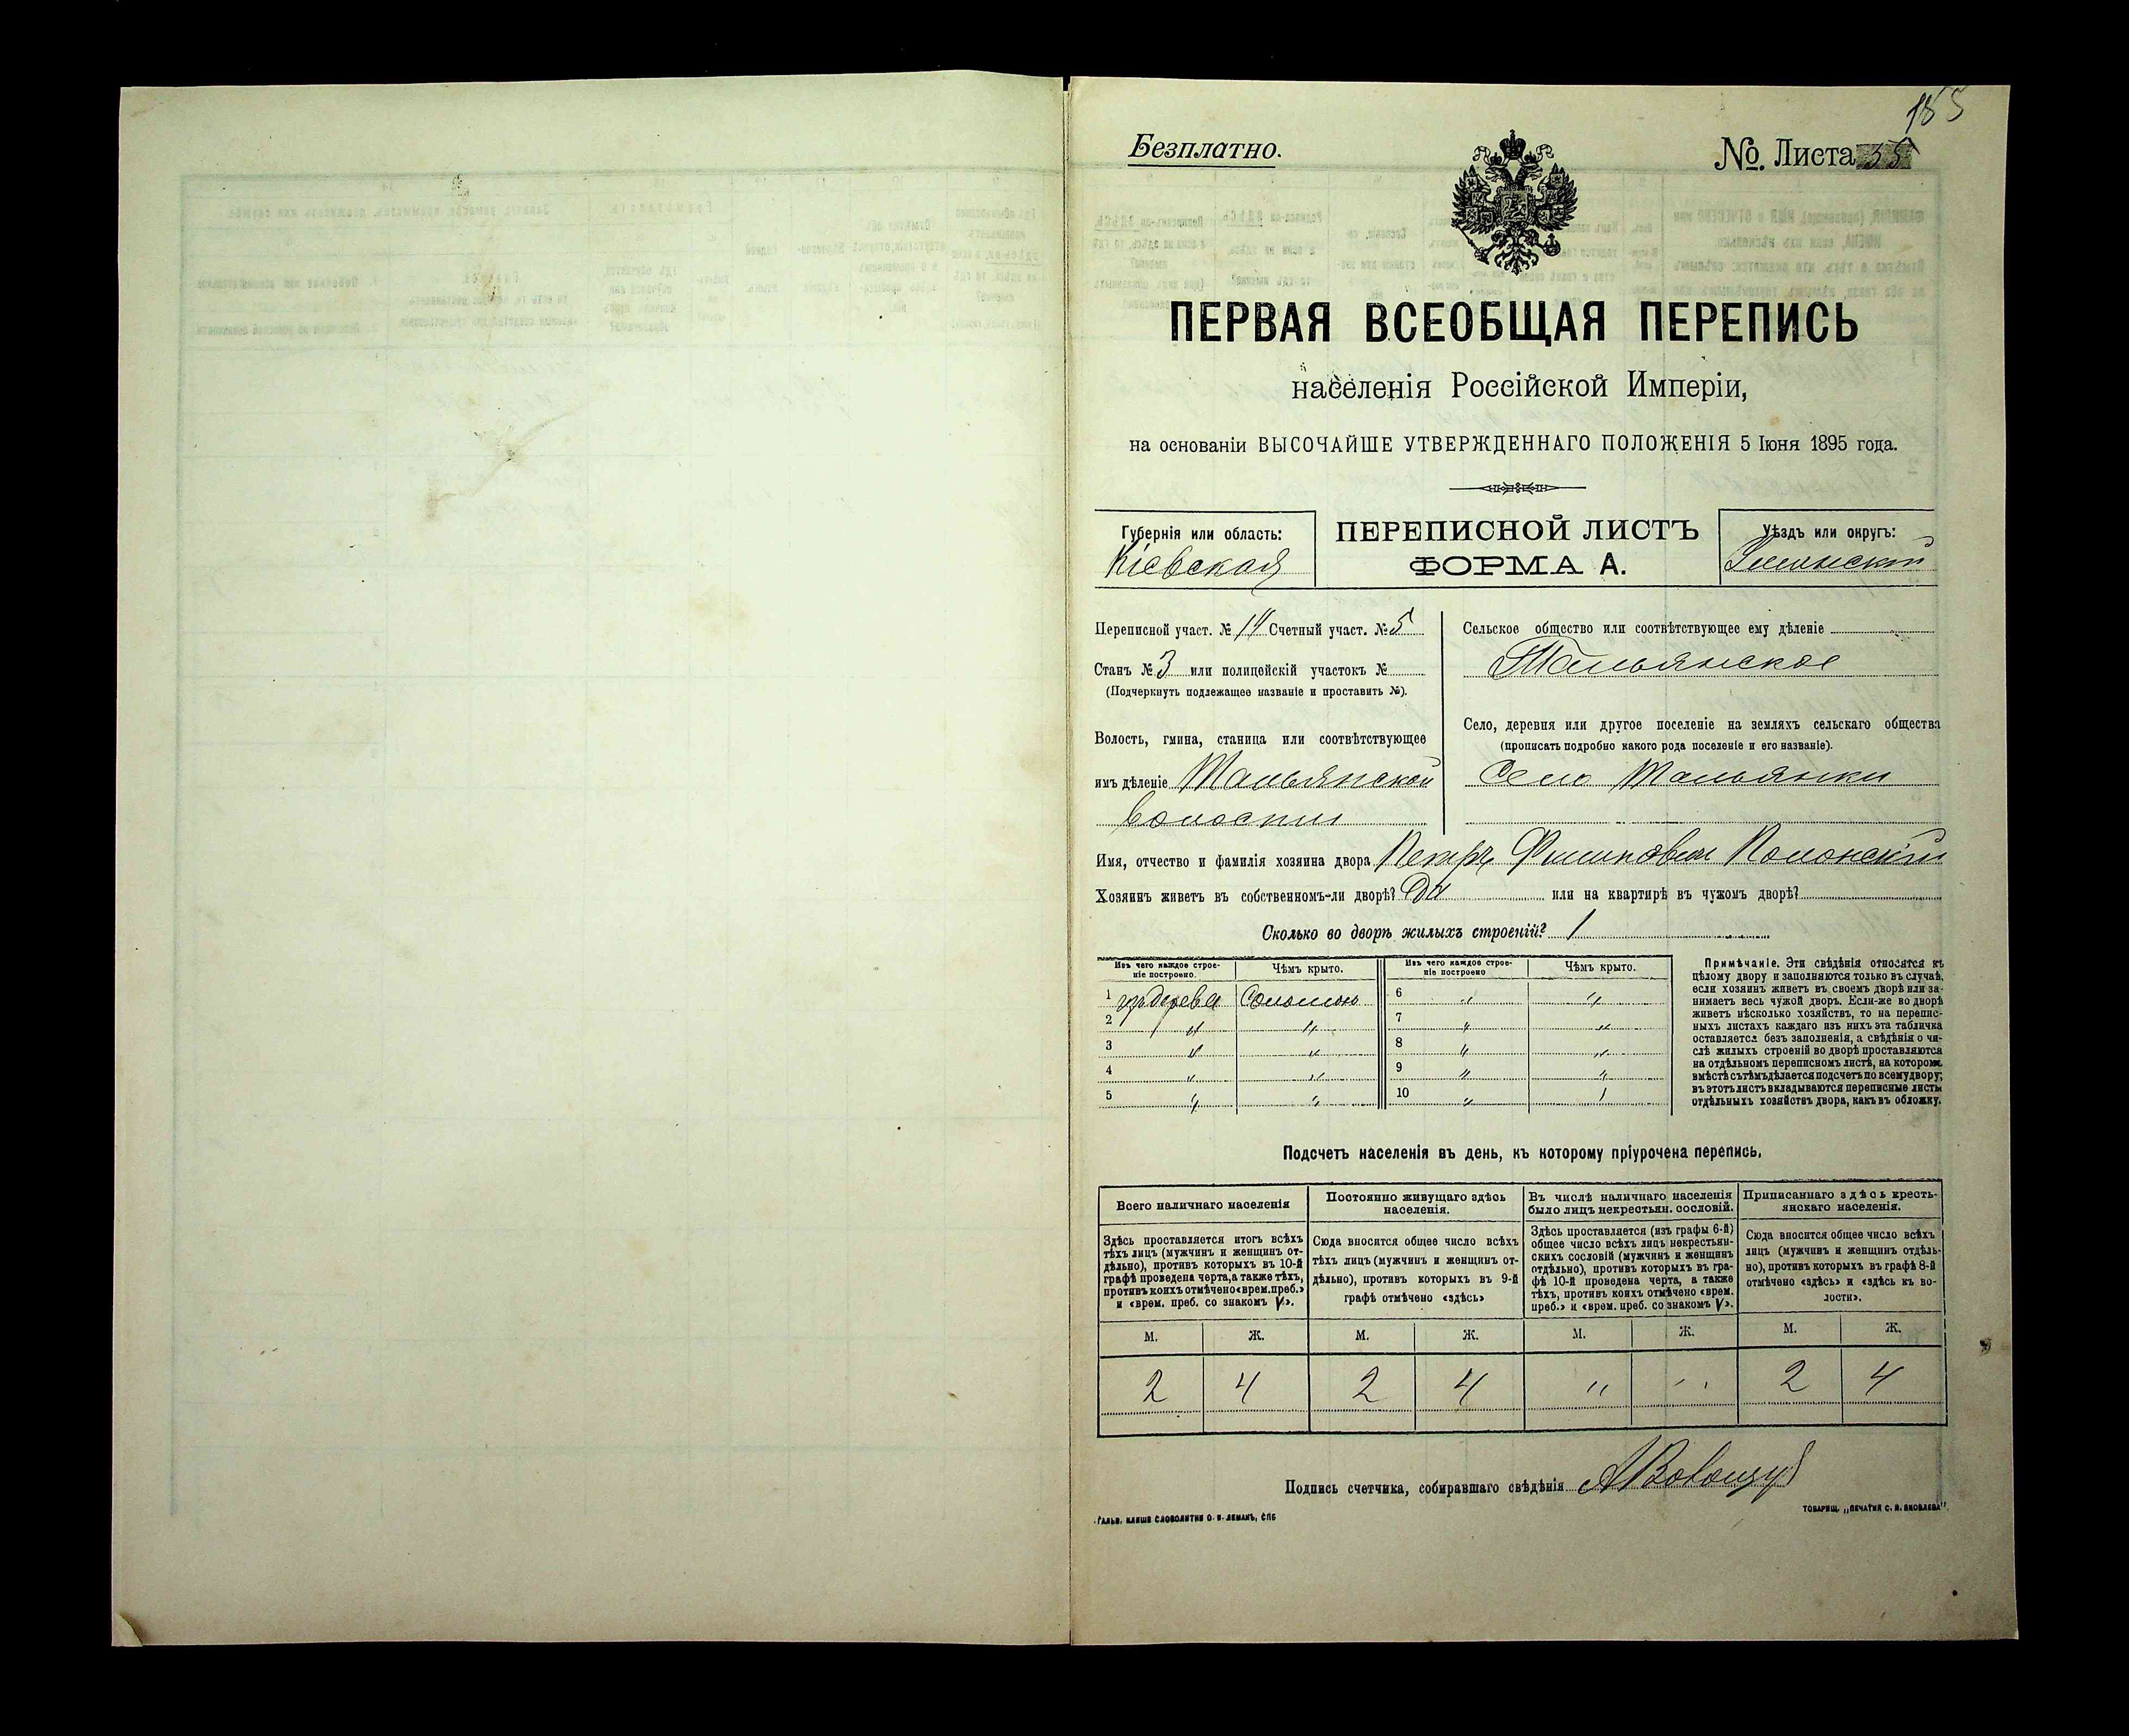 185
Безплатно.
№. Листа 35
ПЕРВАЯ ВСЕОБЩАЯ ПЕРЕПИСЬ
населенія Россійской Имперіи,
на основаніи ВЫСОЧАЙШЕ УТВЕРЖДЕННАГО ПОЛОЖЕНІЯ 5 Іюня 1895 года.
Губернія или область:
Кіевская
ПЕРЕПИСНОЙ ЛИСТЪ
ФОРМА А.
Уѣздъ или округъ:
Уманскій
Переписной участ. № 14 Счетный участ. № 5
Станъ № 3 или полицейскій участокъ №
(Подчеркнуть подлежащее названіе и проставить №).
Волость, гмина, станица или соотвѣтствующее
имъ дѣленіе Тальянской
волости
Сельское общество или соотвѣтствующее ему дѣленіе
Тальянское
Село, деревня или другое поселеніе на земляхъ сельскаго общества
(прописать подробно какого рода поселеніе и его названіе).
Село Тальянки
Имя, отчество и фамилія хозяина двора Петръ Филиповъ Полонскій
Хозяинъ живетъ въ собственномъ-ли дворѣ? Да или на квартирѣ въ чужомъ дворѣ?
Сколько во дворѣ жилыхъ строеній? 1
Изъ чего каждое строе-
ніе построено.
Чѣмъ крыто.
Изъ чего каждое строе-
ніе построено
Чѣмъ крыто.
1 изъ дерева Соломою 6 " "
2 " " 7 " "
3 " " 8 " "
4 " " 9 " "
5 " " 10 "
Примѣчаніе. Эти свѣдѣнія относятся къ
цѣлому двору и заполняются только въ случаѣ,
если хозяинъ живетъ въ своемъ дворѣ или за-
нимаетъ весь чужой дворъ. Если-же во дворѣ
живетъ нѣсколько хозяйствъ, то на перепис-
ныхъ листахъ каждаго изъ нихъ эта табличка
оставляется безъ заполненія, а свѣдѣнія о чи-
слѣ жилыхъ строеній во дворѣ проставляются
на отдѣльномъ переписномъ листѣ, на которомъ
вмѣстѣ съ тѣмъ дѣлается подсчетъ по всему двору;
въ этотъ листъ вкладываются переписные листы
отдѣльныхъ хозяйствъ двора, какъ въ обложку.
Подсчетъ населенія въ день, къ которому пріурочена перепись.
Всего наличнаго населенія
Здѣсь проставляется итогъ всѣхъ
тѣхъ лицъ (мужчинъ и женщинъ от-
дѣльно), противъ которыхъ въ 10-й
графѣ проведена черта, а также тѣхъ,
противъ коихъ отмѣчено «врем. преб.»
и «врем. преб. со знакомъ V».
Постоянно живущаго здѣсь
населенія.
Сюда вносится общее число всѣхъ
тѣхъ лицъ (мужчинъ и женщинъ от-
дѣльно), противъ которыхъ въ 9-й
графѣ отмѣчено «здѣсь»
Въ числѣ наличнаго населенія
было лицъ некрестьян. сословій.
Здѣсь проставляется (изъ графы 6-й)
общее число всѣхъ лицъ некрестьян-
скихъ сословій (мужчинъ и женщинъ
отдѣльно), противъ которыхъ въ гра-
фѣ 10-й проведена черта, а также
тѣхъ, противъ коихъ отмѣчено «врем.
преб.» и «врем. преб. со знакомъ V».
Приписаннаго здѣсь кресть-
янскаго населенія.
Сюда вносится общее число всѣхъ
лицъ (мужчинъ и женщинъ отдѣль-
но), противъ которыхъ въ графѣ 8-й
отмѣчено «здѣсь» и «здѣсь къ во-
лости».
М. Ж. М. Ж. М. Ж. М. Ж.
2 4 2 4 " " 2 4
Подпись счетчика, собиравшаго свѣдѣнія
ГАЛЬВ. КЛИШЕ СЛОВОЛИТНИ О. И. ЛЕМАНЪ, СПБ
ТОВАРИЩ. „ПЕЧАТНЯ С. П. ЯКОВЛЕВА"